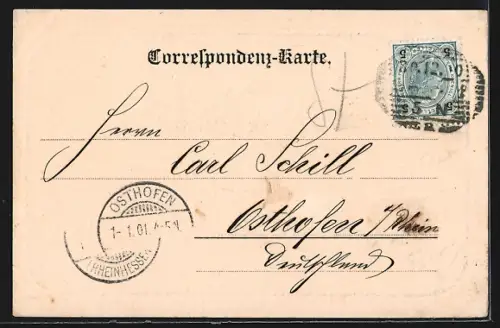 Correspondenz-Karte.
5 5
5 N
Herrn
Carl Schill
Osthofen a/Rhein
Deutschland
OSTHOFEN
1-1.01.4-5N
(RHEINHESSEN)